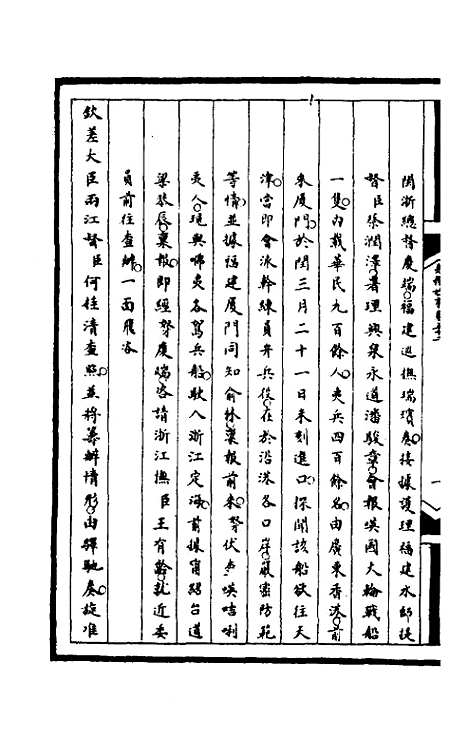 閩浙總督慶端福建巡撫瑞璸奏接據護理福建水師提
督臣蔡潤澤署理興泉永道潘駿章會報㖤國大輪戰船
一隻內載華民九百餘人夷兵四百餘名由廣東香港前
來厦門於閏三月二十一日未刻進口探聞該船欲往天
津當即會派幹練員弁兵役在於沿海各口岸嚴密防範
等情並據福建厦門同知俞林稟報前來孥伏查㖤咭唎
夷人現與咈夷各駕兵船駛入浙江定海前據甯紹台道
梁恭辰稟報即經孥慶端咨請浙江撫臣王有齡就近委
員前往查辦一面飛咨
欽差大臣兩江督臣何桂清查照並將籌辦情形由驛馳奏旋准